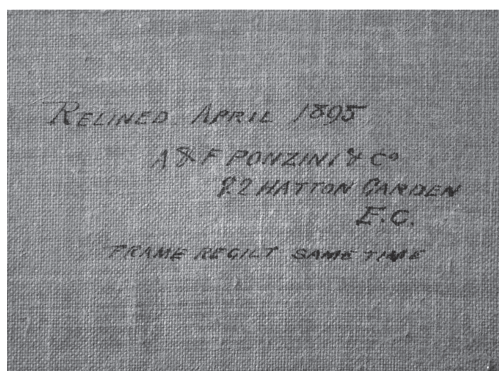 RELINED APRIL 1895
A & F PONZINI & Co
82 HATTON GARDEN
E.C.
FRAME REGILT SAME TIME